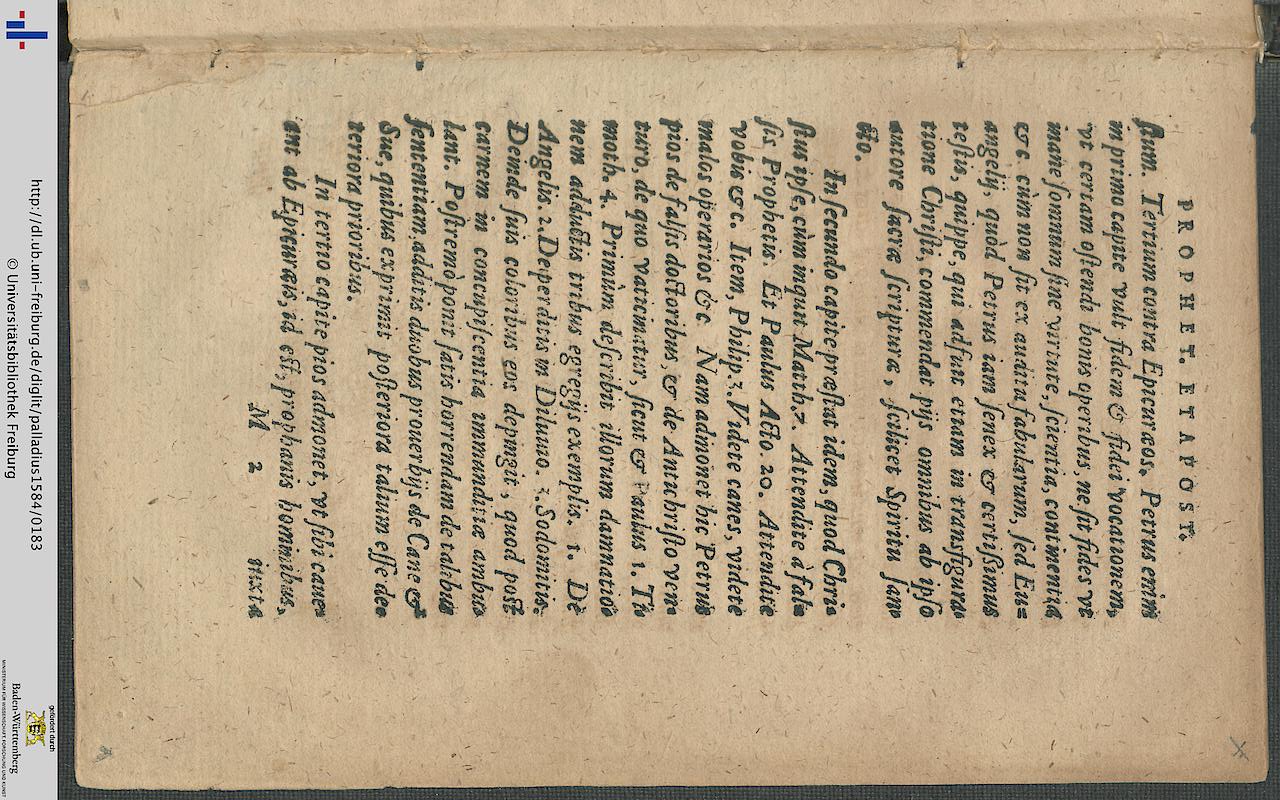 PROPHET. ET APOST.
ſtum. Tertium contra Epicuræos. Petrus enim
in primo capite vult fidem & fidei vocationem,
vt certam oſtendi bonis operibus, ne ſit fides vt
inane ſomnium ſine virtute, ſcientia, conimentia
&c. cùm non ſit ex auditu fabularum, ſed Eu=
angelij, quòd Petrus iam ſenex & certiſsimus
teſtis, quippe, qui adfuit etiam in transfigura=
tione Chriſti, commendat pijs omnibus ab ipſo
autore ſacræ ſcripturæ, ſcilicet Spiritu ſan=
cto.
In ſecundo capite præſtat idem, quod Chri=
ſtus ipſe, cùm inquit Matth.7. Attendite à fal=
ſis Prophetis. Et Paulus Acto. 20. Attendite
vobis &c. Item, Philip.3. Videte canes, videte
malos operarios &c. Nam admonet hic Petrus
pios de falſis doctoribus, & de Antichriſto ven=
turo, de quo vaticinatur, ſicut & Paulus 1. Ti=
moth. 4. Primùm deſcribit illorum damnatio=
nem adductis tribus egregijs exemplis. 1. De
Angelis. 2. De perditis in Diluuio. 3. Sodomitis.
Deinde ſuis coloribus eos depingit, quod poſt
carnem in concupiſcentia immunditiæ ambu=
lant. Poſtremò ponit ſatis horrendam de talibus
ſententiam, additis duobus prouerbijs de Cane &
Sue, quibus exprimit poſteriora talium eſſe de=
teriora prioribus.
In tertio capite pios admonet, vt ſibi caue=
ant ab Epicuræis, id eſt, prophanis hominibus,
M 2 iuxta
http://dl.ub.uni-freiburg.de/diglit/palladius1584/0183
© Universitätsbibliothek Freiburg
gefördert durch
Baden-Württemberg
MINISTERIUM FÜR WISSENSCHAFT, FORSCHUNG UND KUNST